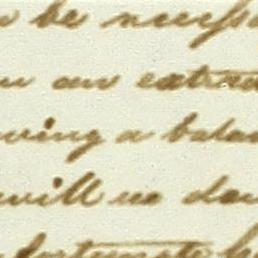 be necessa
an extra
wing a balan
will no dou
fortunate